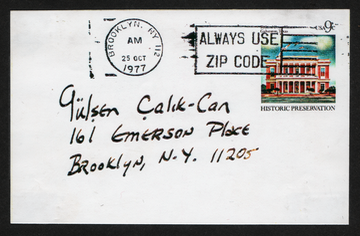 BROOKLYN, NY 112
AM
25 OCT
1977
ALWAYS USE
ZIP CODE
USA 9¢
HISTORIC PRESERVATION
Gülsen Çalik-Can
161 EMERSON PLACE
BROOKLYN, N.Y. 11205